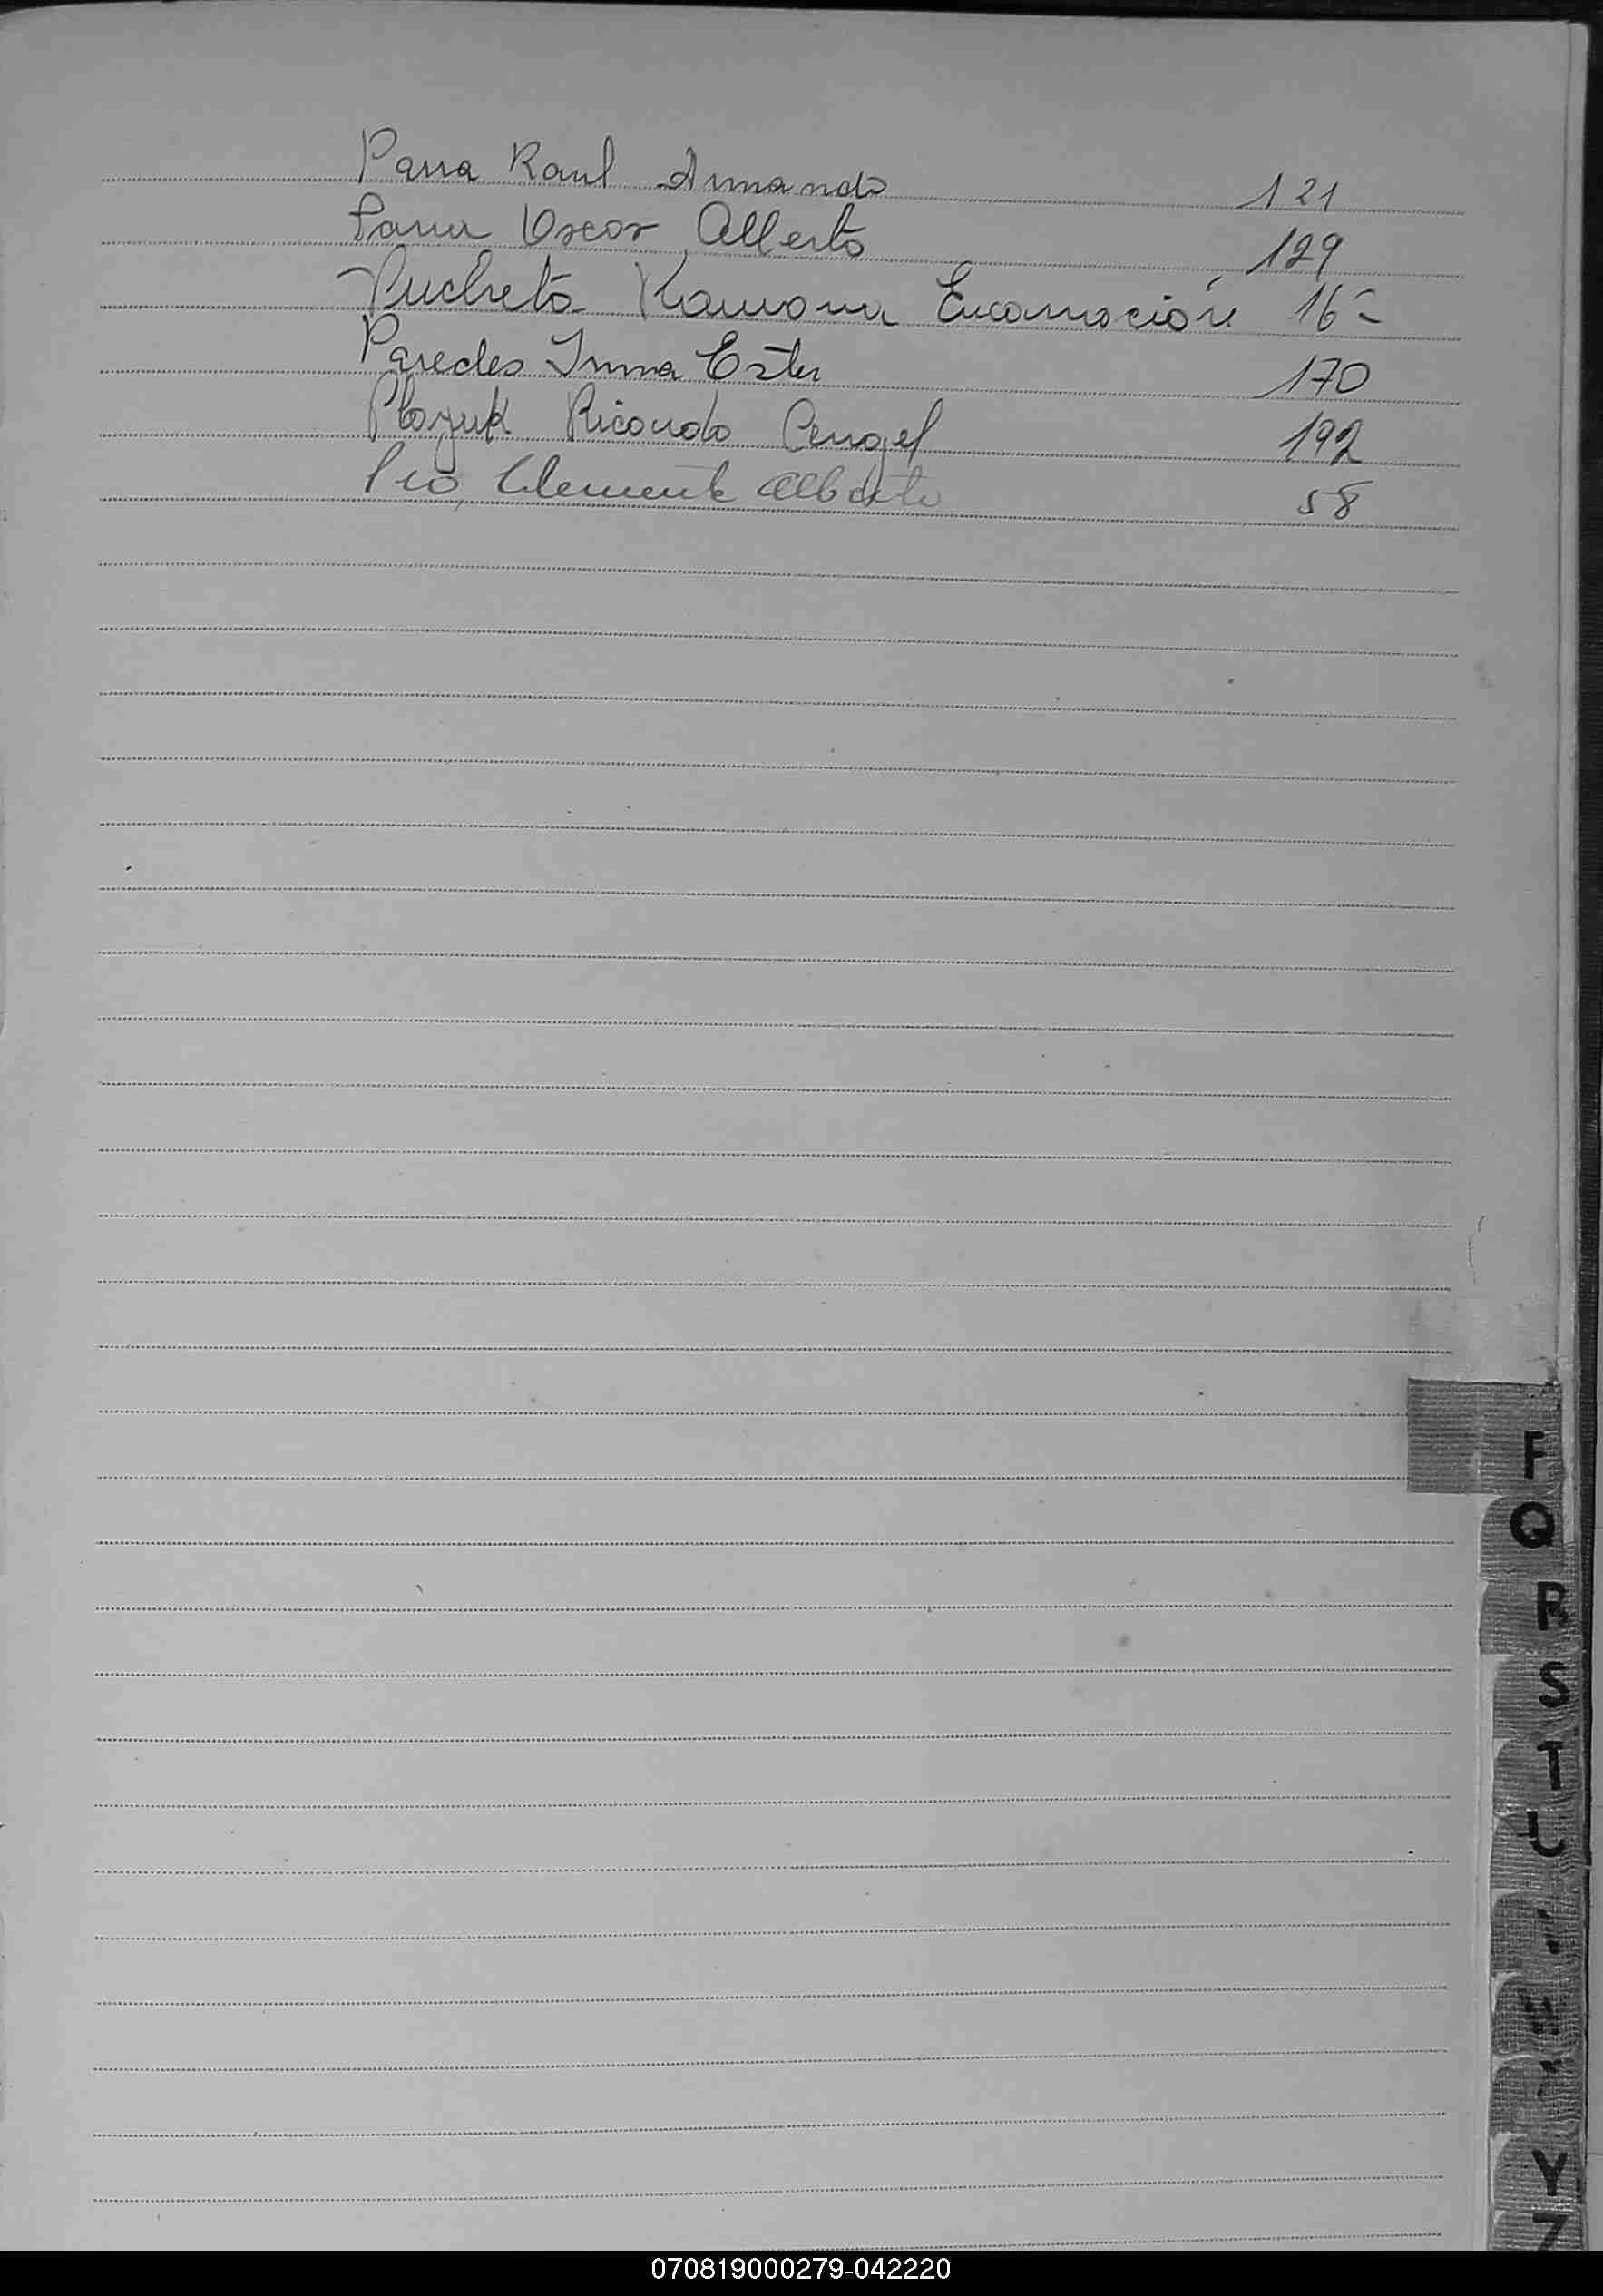 Parra Raul Armando 121
Parra Oscar Alberto 129
Pucheta Ramona Encarnación
Paredes Irma Ester 170
Plozuk Ricardo Angel 192
Pio, Clemente Alberto 58
F
Q
R
S
T
U
Y
Z
070819000279-042220